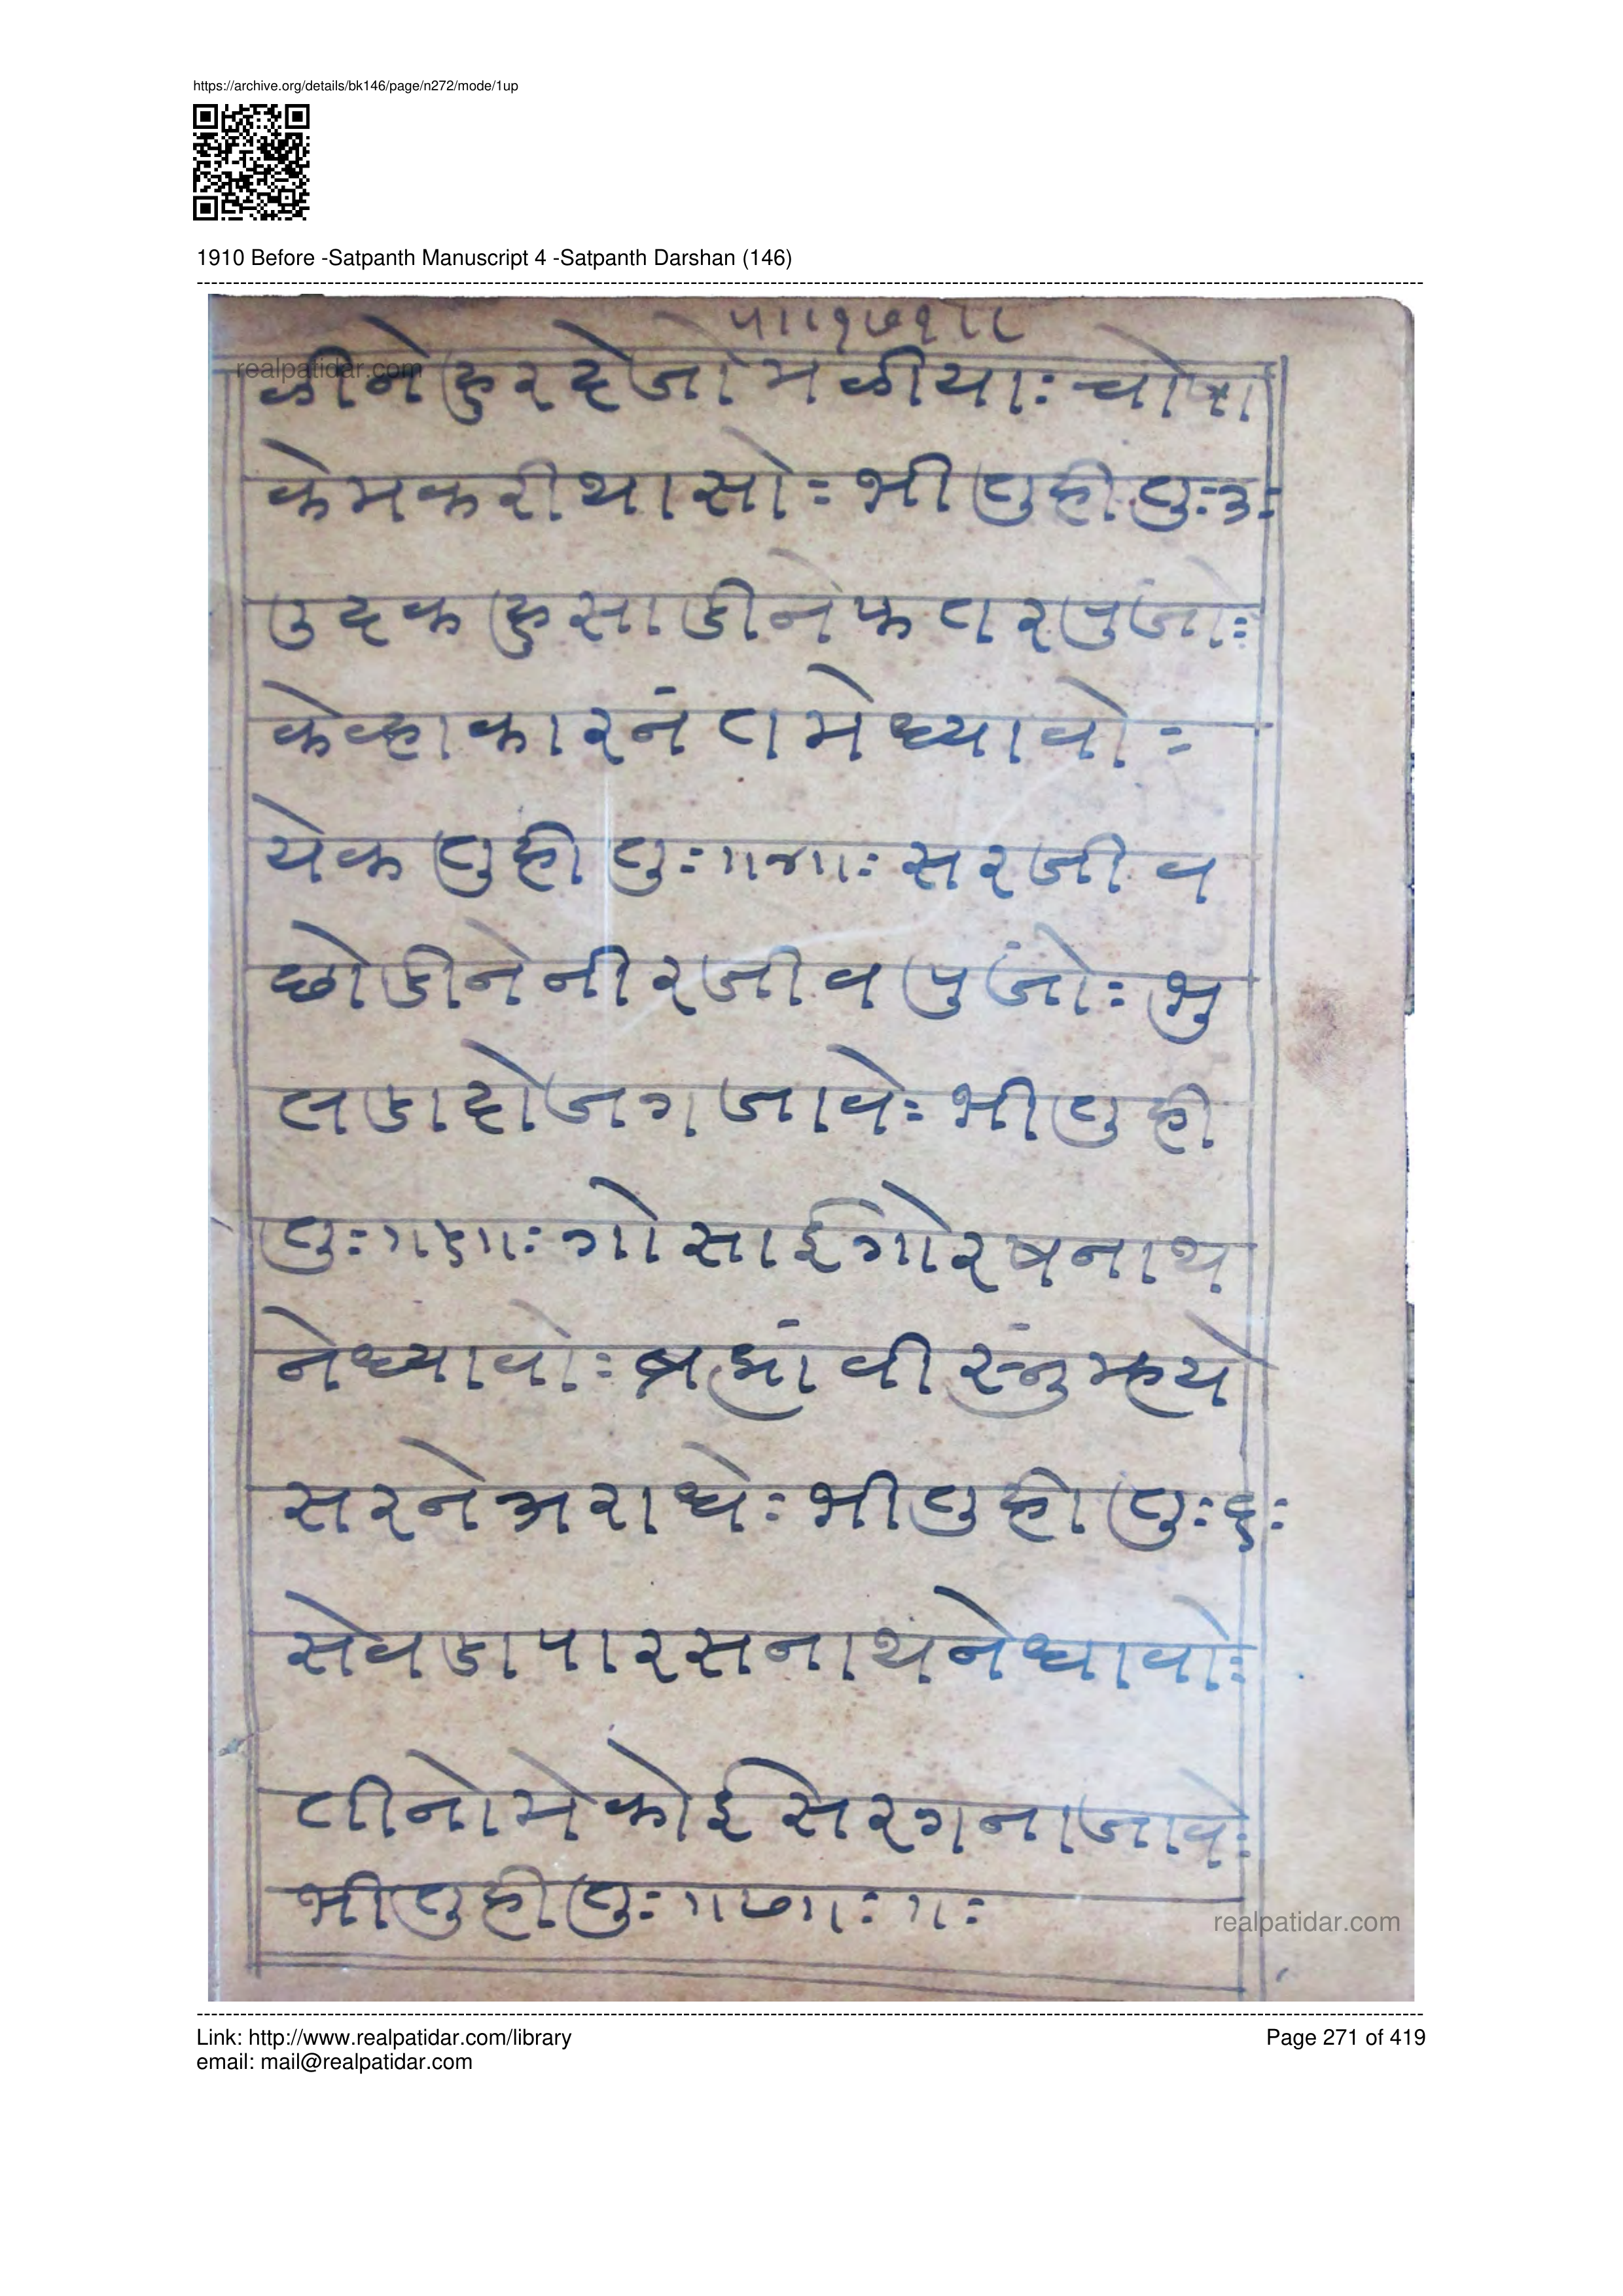 https://archive.org/details/bk146/page/n272/mode/1up
1910 Before -Satpanth Manuscript 4 -Satpanth Darshan (146)
पा।१७१॥
realpatidar.com
ळीने हुरदे जो मळीयाः चोषा
केम करी थासोः भी तुही तुः३ः
उदक हु साडीने फतर पुजोः
केव्हा कारनं तमे ध्यावोः
येक तुही तुः॥४॥ः सरजीव
छोडीने नीरजीव पुंजोः भु
लडा दोजग जावेः भी तुही
तुः॥५॥ः गोसाई गोरषनाथ
ने ध्यावोः ब्रह्मां वीस्नु म्हये
सरने अराधेः भी तुही तुः६ः
सेवडा पारसनाथने ध्यावोः
तीनो मे कोई सेरग ना जावेः
भी तुही तुः॥७॥ः॥ः
realpatidar.com
Link: http://www.realpatidar.com/library
Page 271 of 419
email: mail@realpatidar.com